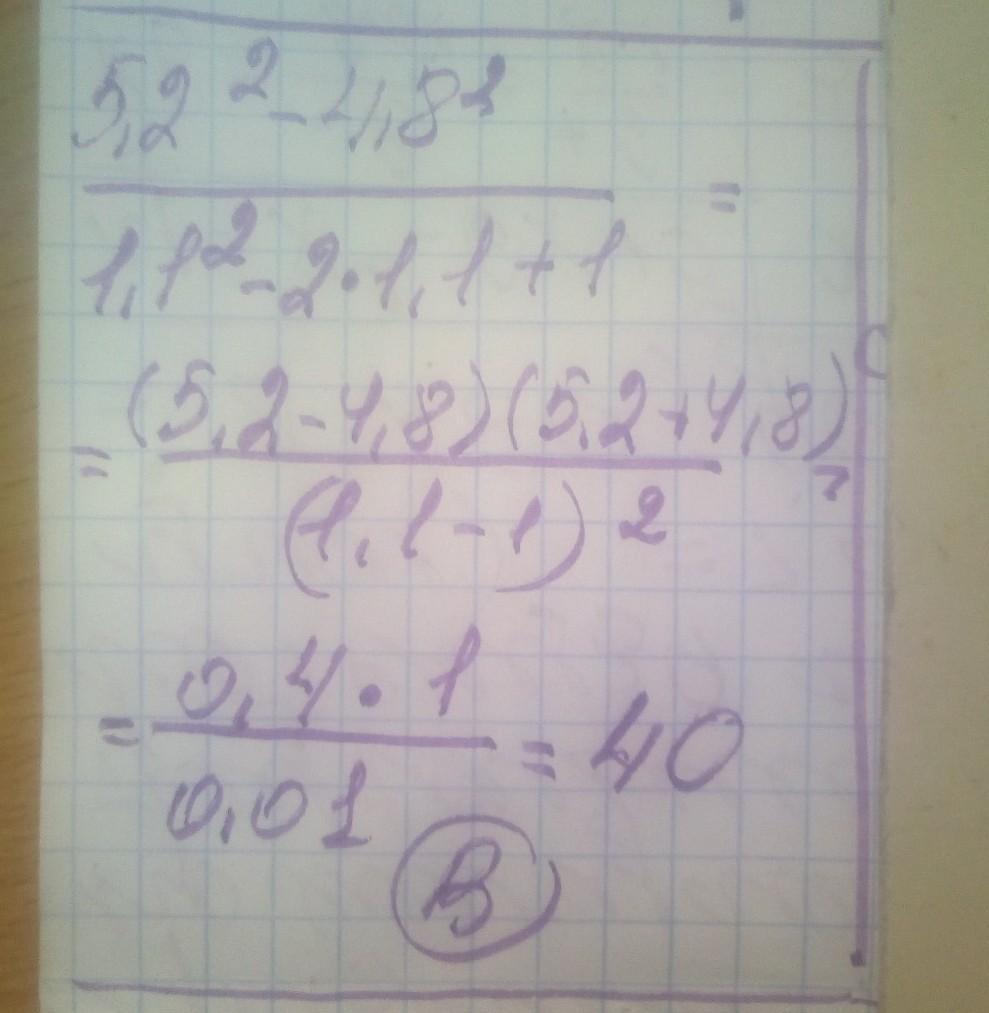 5,2² - 4,8²
1,1² - 2·1,1 + 1 =
= (5,2 - 4,8)(5,2 + 4,8) =
(1,1 - 1)²
= 0,4 · 1
0,01 = 40
B